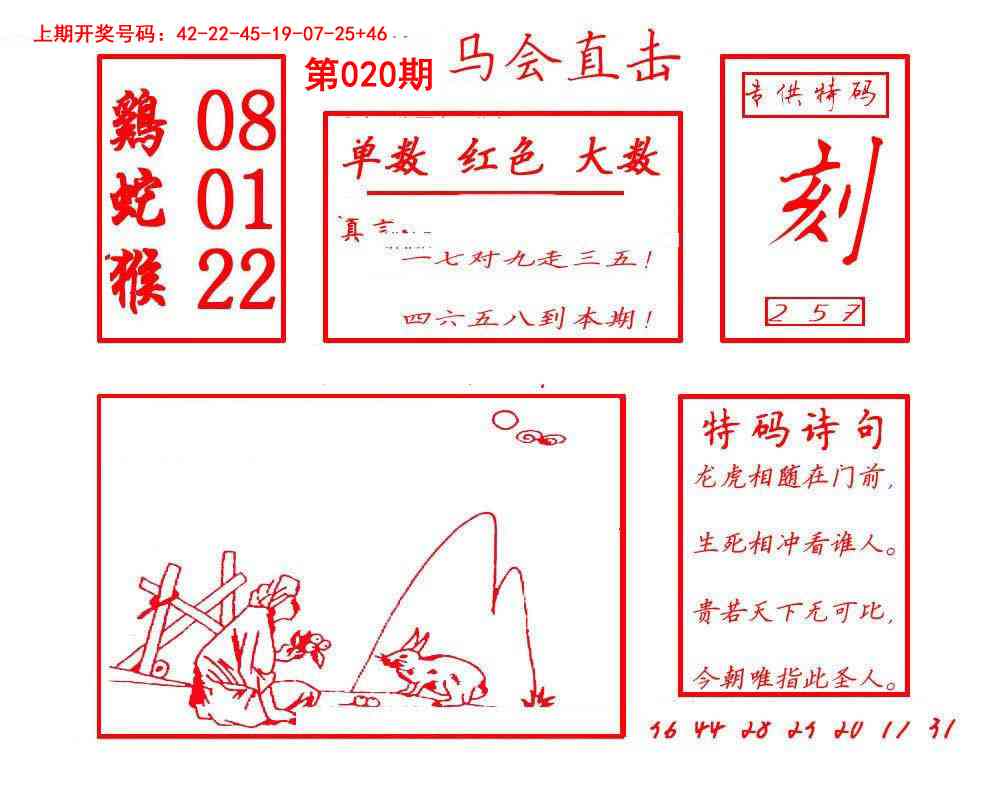 上期开奖号码：42-22-45-19-07-25+46
第020期
马会直击
鷄 08
蛇 01
猴 22
单数 红色 大数
真言
一七对九走三五！
四六五八到本期！
供特码
刻
257
特码诗句
龙虎相随在门前，
生死相冲看谁人。
贵若天下无可比，
今朝唯指此圣人。
44 28 29 20 11 31